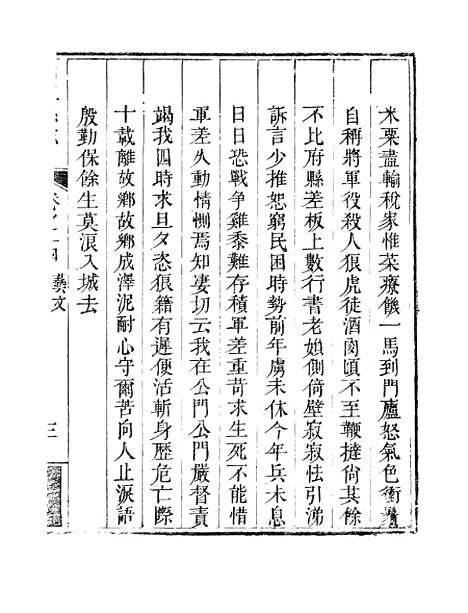 米粟盡輸稅家惟菜療饑一馬到門廬怒氣色衝鬚
自稱將軍役殺人狠虎徒酒肉頃不至鞭撻尙其餘
不比府縣差板上數行書老媍側倚壁寂寂怯引涕
訴言少推恕窮民困時勢前年虜未休今年兵未息
日日恐戰爭雞黍難存積軍差重苛求生死不能惜
軍差久動情惻焉知妻切云我在公門公門嚴督責
竭我四時求旦夕恣狼籍有遲便活斬身歷危亡際
十載離故鄉故鄉成澤泥耐心守爾苦向人止淚語
殷勤保餘生莫浪入城去
卷之十四 藝文
三